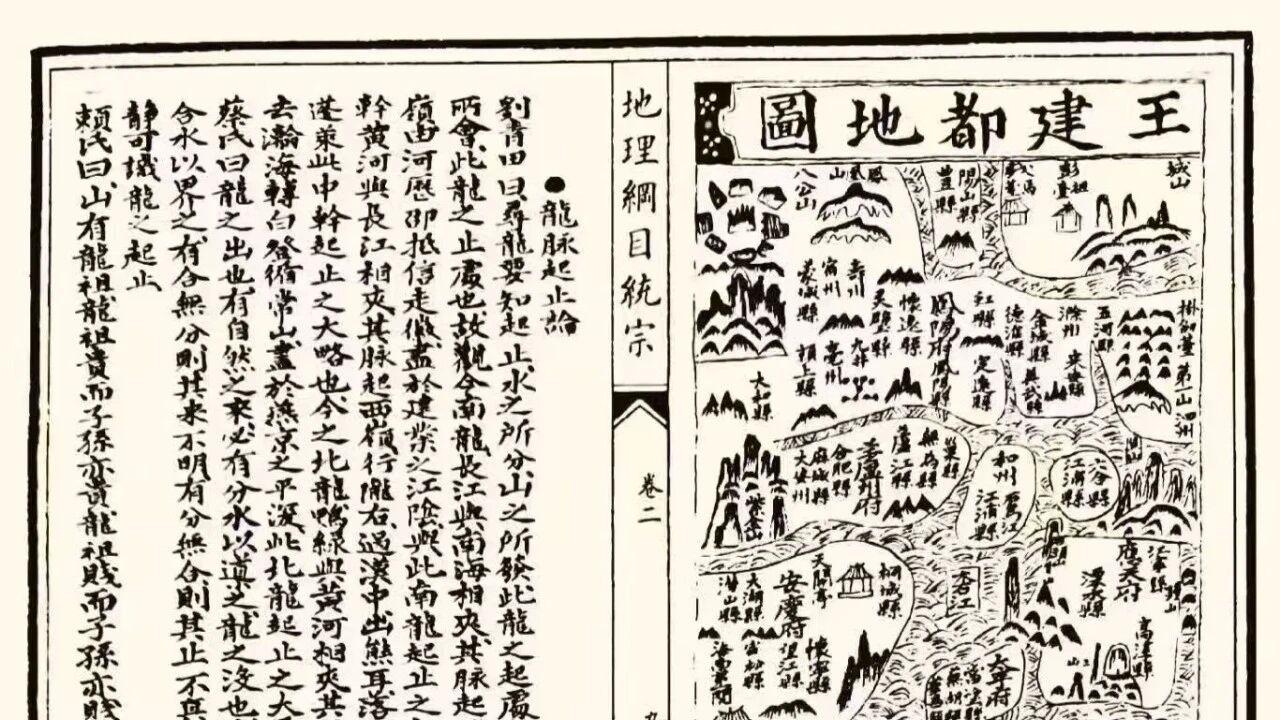 王建都地圖
城山
彭祖
豊縣
碭山縣
鳳凰山
八公山
掛劍臺
第一山
泗州
五河縣
滁州
來安縣
全椒縣
虹縣
定遠縣
鳳陽府
鳳陽縣
懷遠縣
天壁縣
壽州
宿州
蒙城縣
亳州
潁上縣
太和縣
六合縣
江浦縣
和州
江浦縣
巢縣
無為縣
廬江縣
合肥縣
麻城縣
六安州
紫金山
應天府
溧水縣
高淳縣
桐城縣
天開亭
安慶府
懷寧縣
望江縣
太湖縣
宿松縣
潛山縣
地理綱目統宗
卷二
●龍脉起止論
劉青田曰尋龍要知起止水之所分山之所發此龍之起處
所會此龍之止處也故觀今南龍長江與南海相夾其脉起
嶺由河歷邵抵信走徽盡於建業之江陰與此南龍起止之
幹黃河與長江相夾其脉起西嶺行隴右過漢中出熊耳落
蓬萊此中幹起止之大略也今之北龍鴨綠與黃河相夾其
去瀚海轉白登循常山盡於燕京之平灤此北龍起止之大
蔡氏曰龍之出也有自然之來必有分水以導之龍之沒也
合水以界之有合無分則其來不明有分無合則其止不真
靜可識龍之起止
賴氏曰山有龍祖龍祖貴而子孫亦貴龍祖賤而子孫亦賤